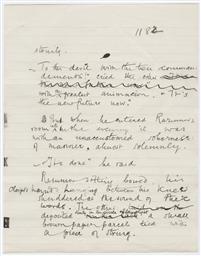 1182
stoutly.
— To the devil with the ten command-
dements!" cried the other
with greatest animation. "It's
the new future now."
But when he entered Razumov's
room in the evening it was
with an unaccustomed soberness
of manner, almost solemnly.
— "It's done" he said
Razumov sitting bowed his
hanging between his knees
shuddered at the sound of these
words. The other
deposited a small
brown paper parcel tied with
a piece of string.